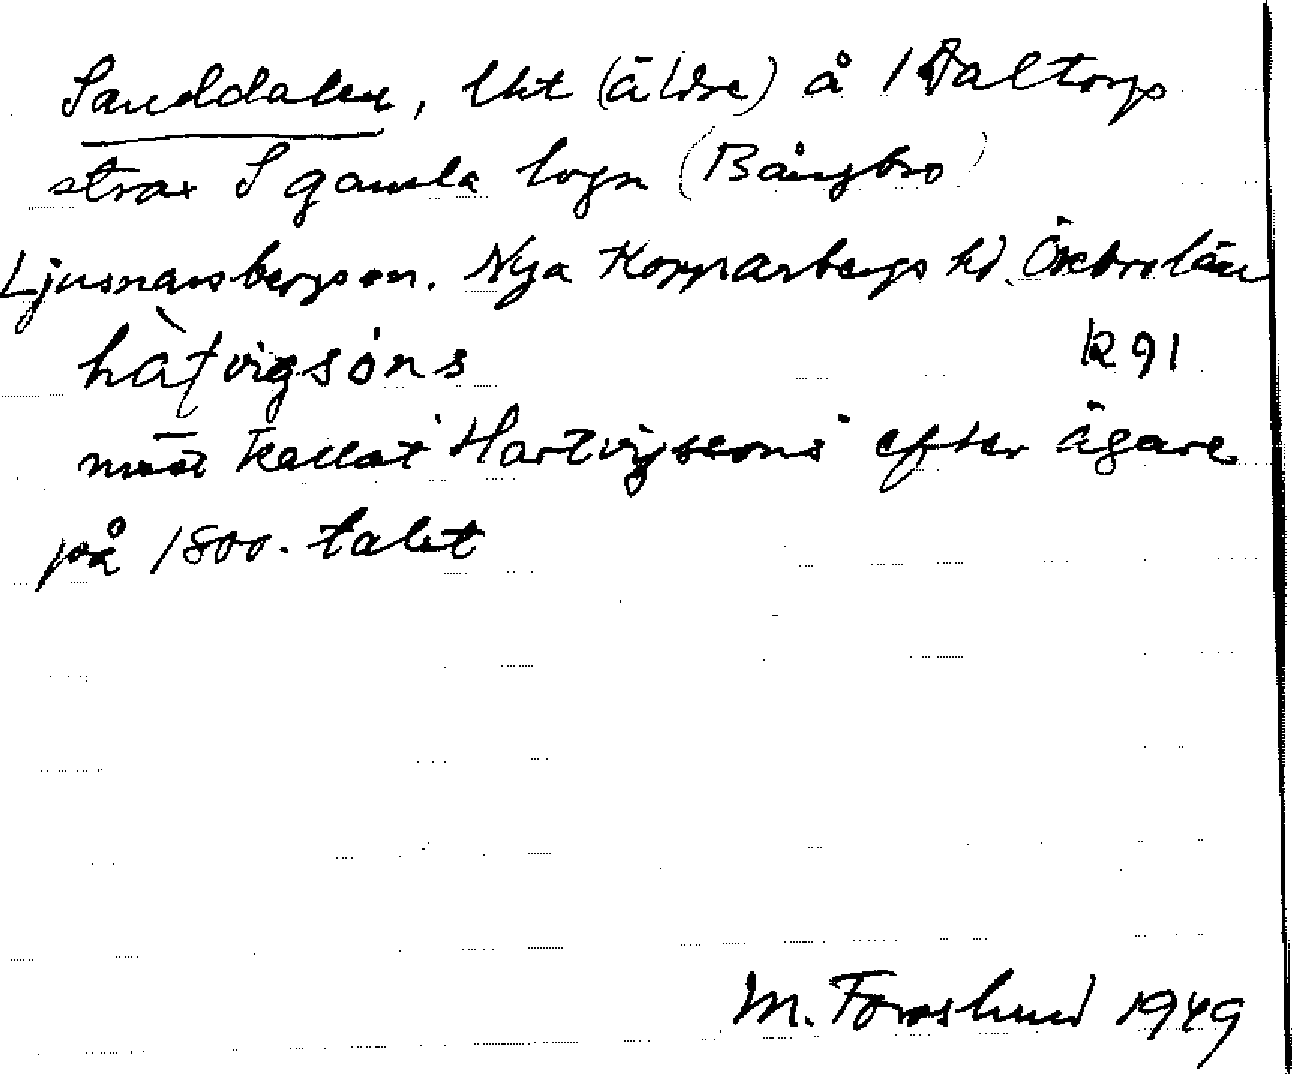 Sanddalen, lht (äldre) å 1 Daltorp
strax S gamla logn (Bångbro)
Ljusnarsbergs sn. Nya Kopparbergs hd. Örebro län
hàṭvigsóns R 91
mest kallat "Hartvigsons" efter ägare
på 1800-talet
M. Forslund 1949